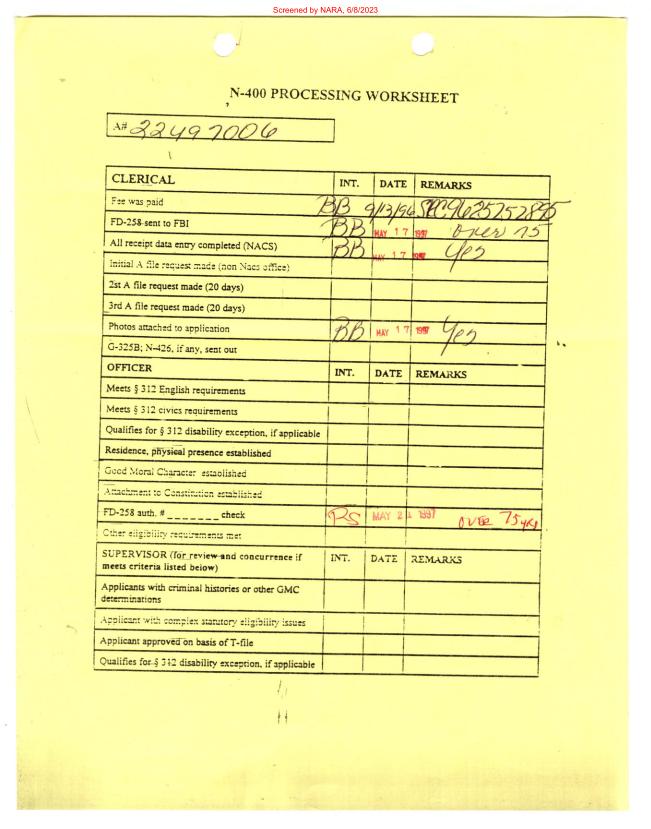 Screened by NARA, 6/8/2023
N-400 PROCESSING WORKSHEET
A# 22497006
CLERICAL INT. DATE REMARKS
Fee was paid BB 9/13/96 SRC9625752895
FD-258 sent to FBI BB MAY 17 1997 over 75
All receipt data entry completed (NACS) BB MAY 17 1997 Yes
Initial A file request made (non Nacs office)
2st A file request made (20 days)
3rd A file request made (20 days)
Photos attached to application BB MAY 17 1997 Yes
G-325B; N-426, if any, sent out
OFFICER INT. DATE REMARKS
Meets § 312 English requirements
Meets § 312 civics requirements
Qualifies for § 312 disability exception, if applicable
Residence, physical presence established
Good Moral Character established
Attachment to Constitution established
FD-258 auth. # _ _ _ _ _ _ _ check RS MAY 21 1997 OVER 75 yrs
Other eligibility requirements met
SUPERVISOR (for review and concurrence if INT. DATE REMARKS
meets criteria listed below)
Applicants with criminal histories or other GMC
determinations
Applicant with complex statutory eligibility issues
Applicant approved on basis of T-file
Qualifies for § 312 disability exception, if applicable